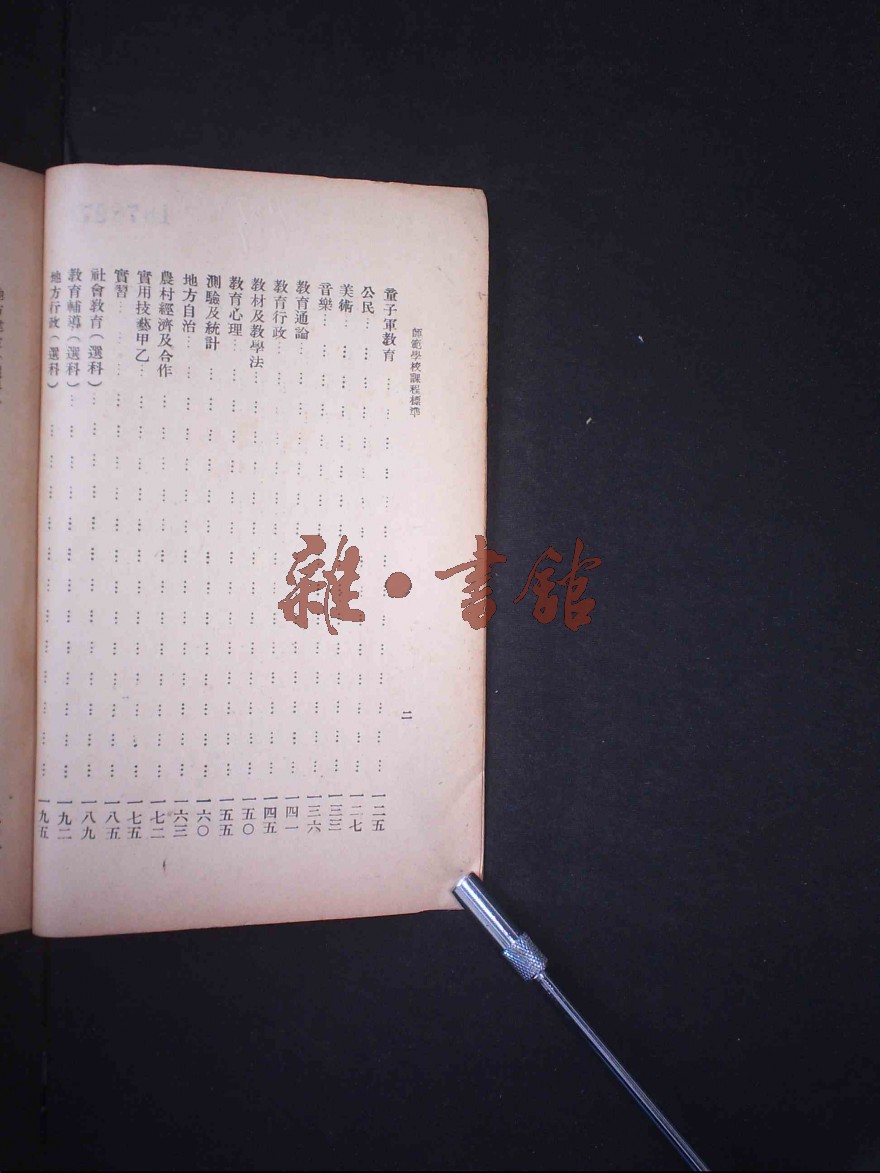 師範學校課程標準
二
童子軍教育 … … … … … … … … 一二五
公民 … … … … … … … … 一二七
美術 … … … … … … … … 一三三
音樂 … … … … … … … … 一三六
教育通論 … … … … … … … … 一四一
教育行政 … … … … … … … … 一四五
教材及教學法 … … … … … … … … 一五〇
教育心理 … … … … … … … … 一五五
測驗及統計 … … … … … … … … 一六〇
地方自治 … … … … … … … … 一六三
農村經濟及合作 … … … … … … … … 一七二
實用技藝甲乙 … … … … … … … … 一七五
實習 … … … … … … … … 一八五
社會教育（選科） … … … … … … … … 一八九
教育輔導（選科） … … … … … … … … 一九二
地方行政（選科） … … … … … … … … 一九五
雜·書館